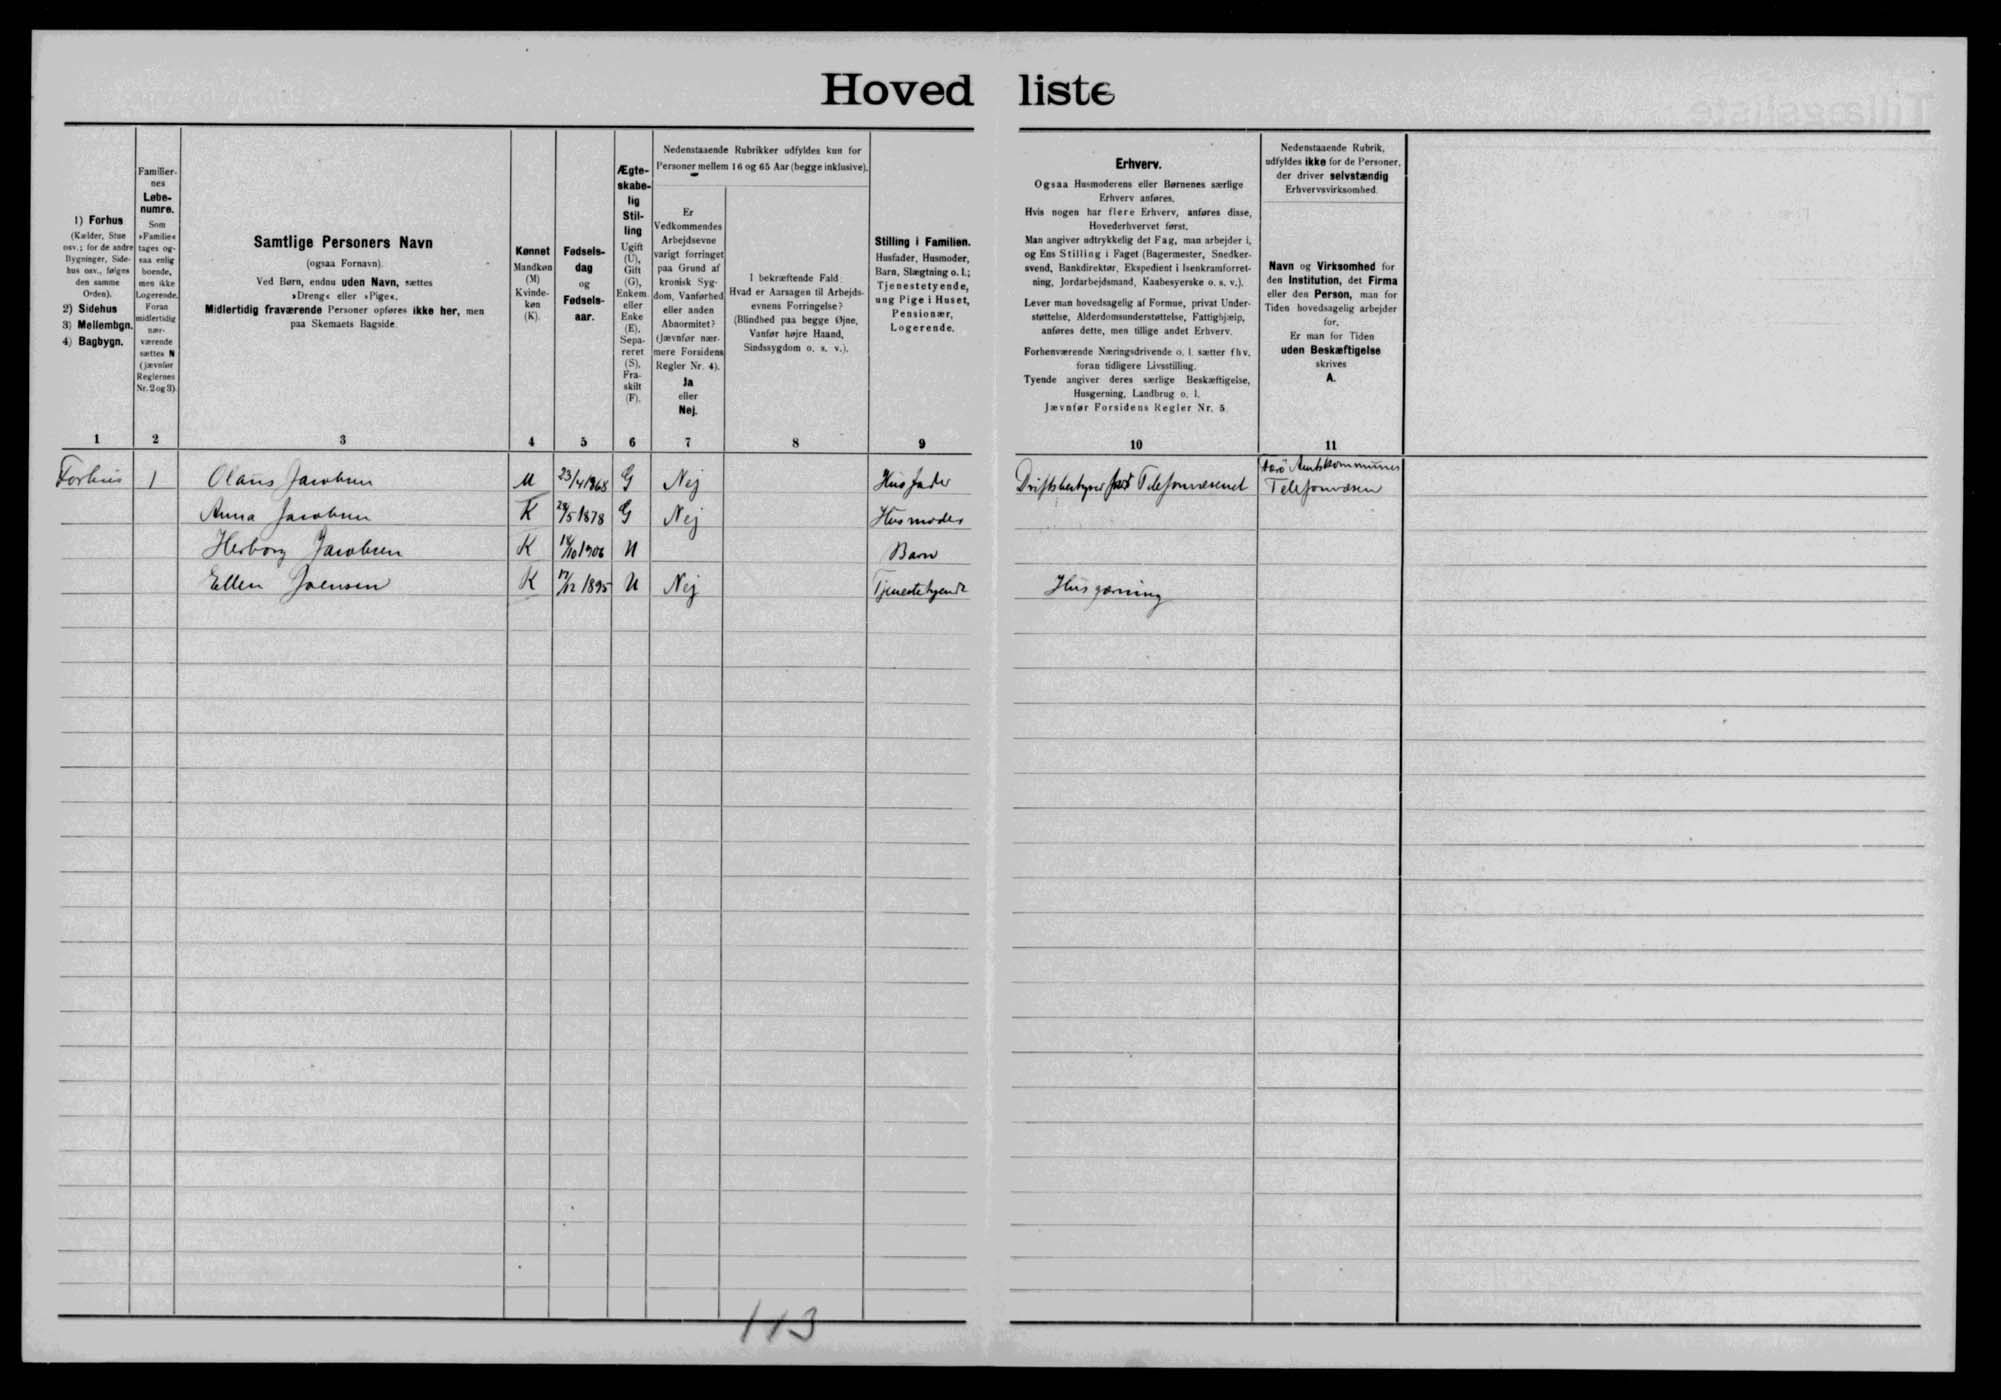 Hovedliste
1) Forhus
(Kælder, Stue
osv.; for de andre
Bygninger, Side-
hus osv., følges
den samme
Orden).
2) Sidehus
3) Mellembgn.
4) Bagbygn.
Familier-
nes
Løbe-
numre.
Som
»Familie«
tages og-
saa enlig
boende,
men ikke
Logerende.
Foran
midlertidig
nær-
værende
sættes N
(jævnfør
Reglernes
Nr. 2 og 3).
Samtlige Personers Navn
(ogsaa Fornavn).
Ved Børn, endnu uden Navn, sættes
»Dreng« eller »Pige«.
Midlertidig fraværende Personer opføres ikke her, men
paa Skemaets Bagside.
Kønnet
Mandkøn
(M)
Kvinde-
køn
(K).
Fødsels-
dag
og
Fødsels-
aar.
Ægte-
skabe-
lig
Stil-
ling
Ugift
(U),
Gift
(G),
Enkem.
eller
Enke
(E),
Sepa-
reret
(S),
Fra-
skilt
(F).
Nedenstaaende Rubrikker udfyldes kun for
Personer mellem 16 og 65 Aar (begge inklusive).
Er
Vedkommendes
Arbejdsevne
varigt forringet
paa Grund af
kronisk Syg-
dom, Vanførhed
eller anden
Abnormitet?
(Jævnfør nær-
mere Forsidens
Regler Nr. 4).
Ja
eller
Nej.
I bekræftende Fald:
Hvad er Aarsagen til Arbejds-
evnens Forringelse?
(Blindhed paa begge Øjne,
Vanfør højre Haand,
Sindssygdom o. s. v.).
Stilling i Familien.
Husfader, Husmoder,
Barn, Slægtning o. l.;
Tjenestetyende,
ung Pige i Huset,
Pensionær,
Logerende.
Erhverv.
Ogsaa Husmoderens eller Børnenes særlige
Erhverv anføres.
Hvis nogen har flere Erhverv, anføres disse,
Hovederhvervet først.
Man angiver udtrykkelig det Fag, man arbejder i,
og Ens Stilling i Faget (Bagermester, Snedker-
svend, Bankdirektør, Ekspedient i Isenkramforret-
ning, Jordarbejdsmand, Kaabesyerske o. s. v.).
Lever man hovedsagelig af Formue, privat Under-
støttelse, Alderdomsunderstøttelse, Fattighjælp,
anføres dette, men tillige andet Erhverv.
Forhenværende Næringsdrivende o. l. sætter fhv.
foran tidligere Livsstilling.
Tyende angiver deres særlige Beskæftigelse,
Husgerning, Landbrug o. l.
Jævnfør Forsidens Regler Nr. 5.
Nedenstaaende Rubrik,
udfyldes ikke for de Personer,
der driver selvstændig
Erhvervsvirksomhed.
Navn og Virksomhed for
den Institution, det Firma
eller den Person, man for
Tiden hovedsagelig arbejder
for.
Er man for Tiden
uden Beskæftigelse
skrives
A.
1 2 3 4 5 6 7 8 9 10 11
Forhus 1 Olaus Jacobsen M 23/4 1968 G Nej Husfader Driftsbestyrer Telefonvæsenet Færö Amtskommunes Telefonvæsen
Anna Jacobsen K 28/5 1878 G Nej Husmoder
Herborg Jacobsen K 14/10 1906 U Barn
Ellen Joensen K 17/12 1895 U Nej Tjenestetyende Husgerning
113